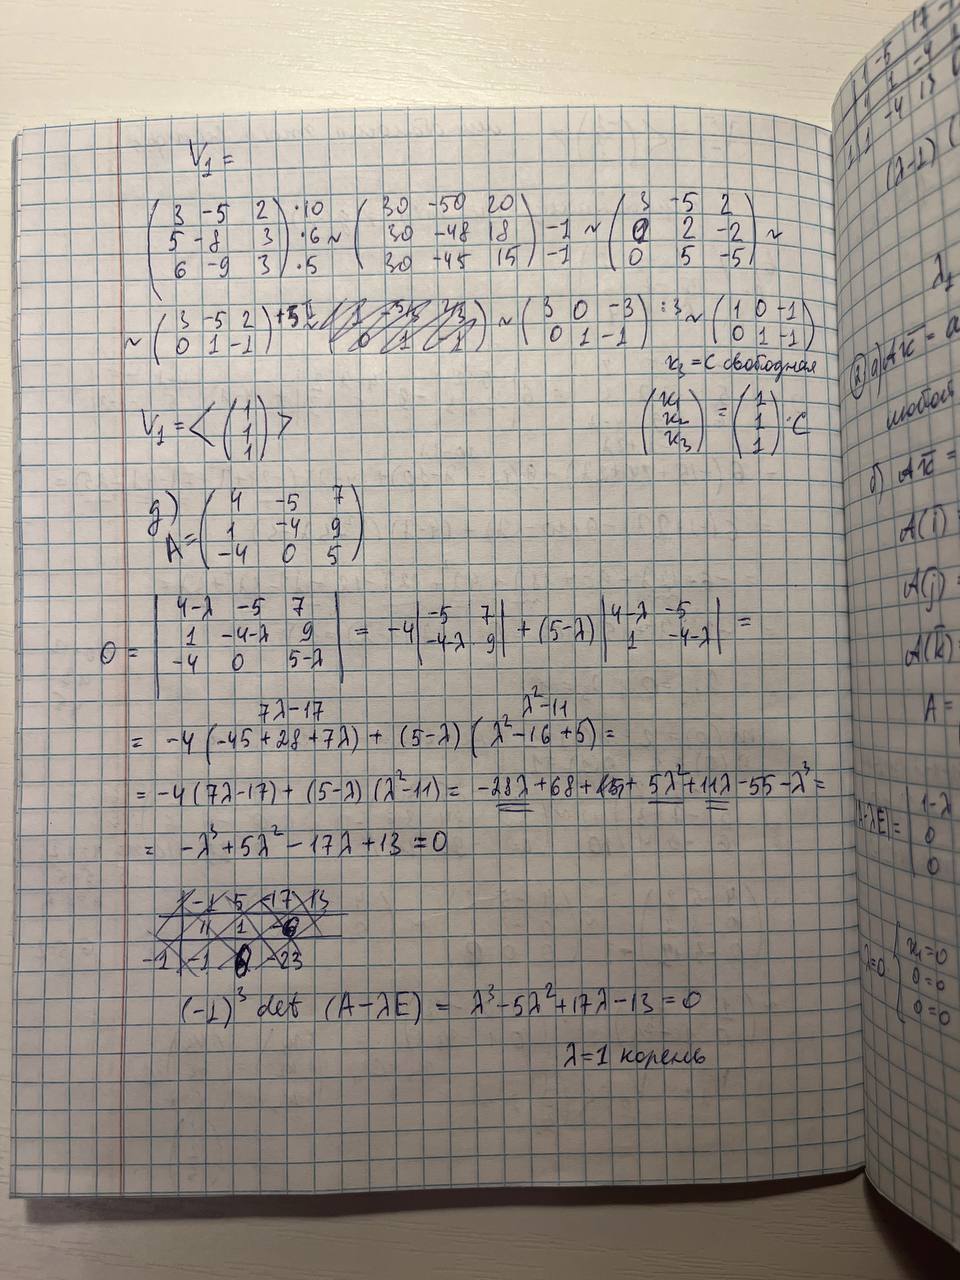 V₁ =
(3 -5 2; 5 -8 3; 6 -9 3) ·10 ·6 ·5 ~ (30 -50 20; 30 -48 18; 30 -45 15) -1 -1 ~ (3 -5 2; 0 2 -2; 0 5 -5) ~
~ (3 -5 2; 0 1 -1) +5II ~ (3 0 -3; 0 1 -1) :3 ~ (1 0 -1; 0 1 -1)
x₃ = C свободная
V₁ = <(1; 1; 1)> (x₁; x₂; x₃) = (1; 1; 1) · C
д)
A = (4 -5 7; 1 -4 9; -4 0 5)
0 = |4-λ -5 7; 1 -4-λ 9; -4 0 5-λ| = -4 |-5 7; -4-λ 9| + (5-λ) |4-λ -5; 1 -4-λ| =
7λ-17 λ²-11
= -4 (-45+28+7λ) + (5-λ) (λ²-16+5) =
= -4 (7λ-17) + (5-λ) (λ²-11) = -28λ + 68 + 5λ² + 11λ - 55 - λ³ =
= -λ³ + 5λ² - 17λ + 13 = 0
(-1)³ det (A-λE) = λ³ - 5λ² + 17λ - 13 = 0
λ=1 корень
1 -5 17
1 -4
1 -4 13 0
(λ-1)
λ₁
② а) Ax̄ =
любой
б) Ax̄ =
A(ī)
A(j̄)
A(k̄)
A =
|A-λE| = |1-λ; 0; 0
λ=0 {x₁=0; 0=0; 0=0